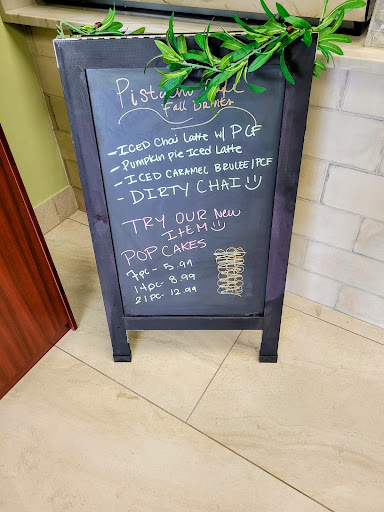 Pistachio Cafe
Fall Drinks
- ICED Chai Latte w/ PCF
- Pumpkin Pie Iced Latte
- ICED CARAMEL BRULEE/PCF
- DIRTY CHAI
TRY OUR New
ITEM
POP CAKES
7pc - 5.99
14pc - 8.99
21pc - 12.99